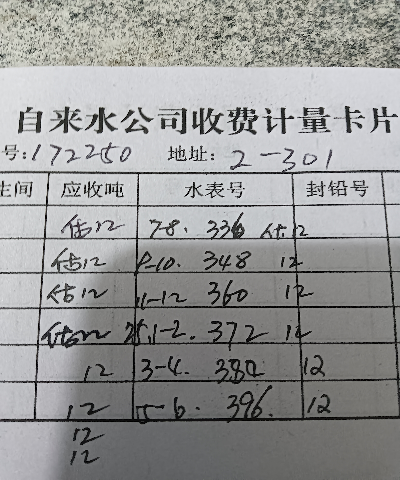 自来水公司收费计量卡片
号:172250 地址: 2-301
生间 应收吨 水表号 封铅号
估12 7-8. 336 估.12
估12 9-10. 348 12
估12 11-12 360 12
估12 25.1-2. 372 12
12 3-4. 384 12
12 5-6. 396. 12
12
12